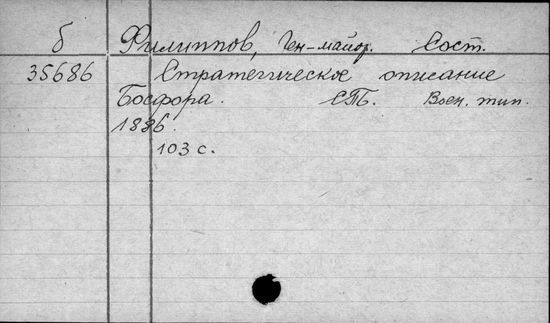 б Филиппов, Ген-майор. Сост.
35686 Стратегическое описание
Босфора. СПБ. Воен. тип.
1886.
103 с.